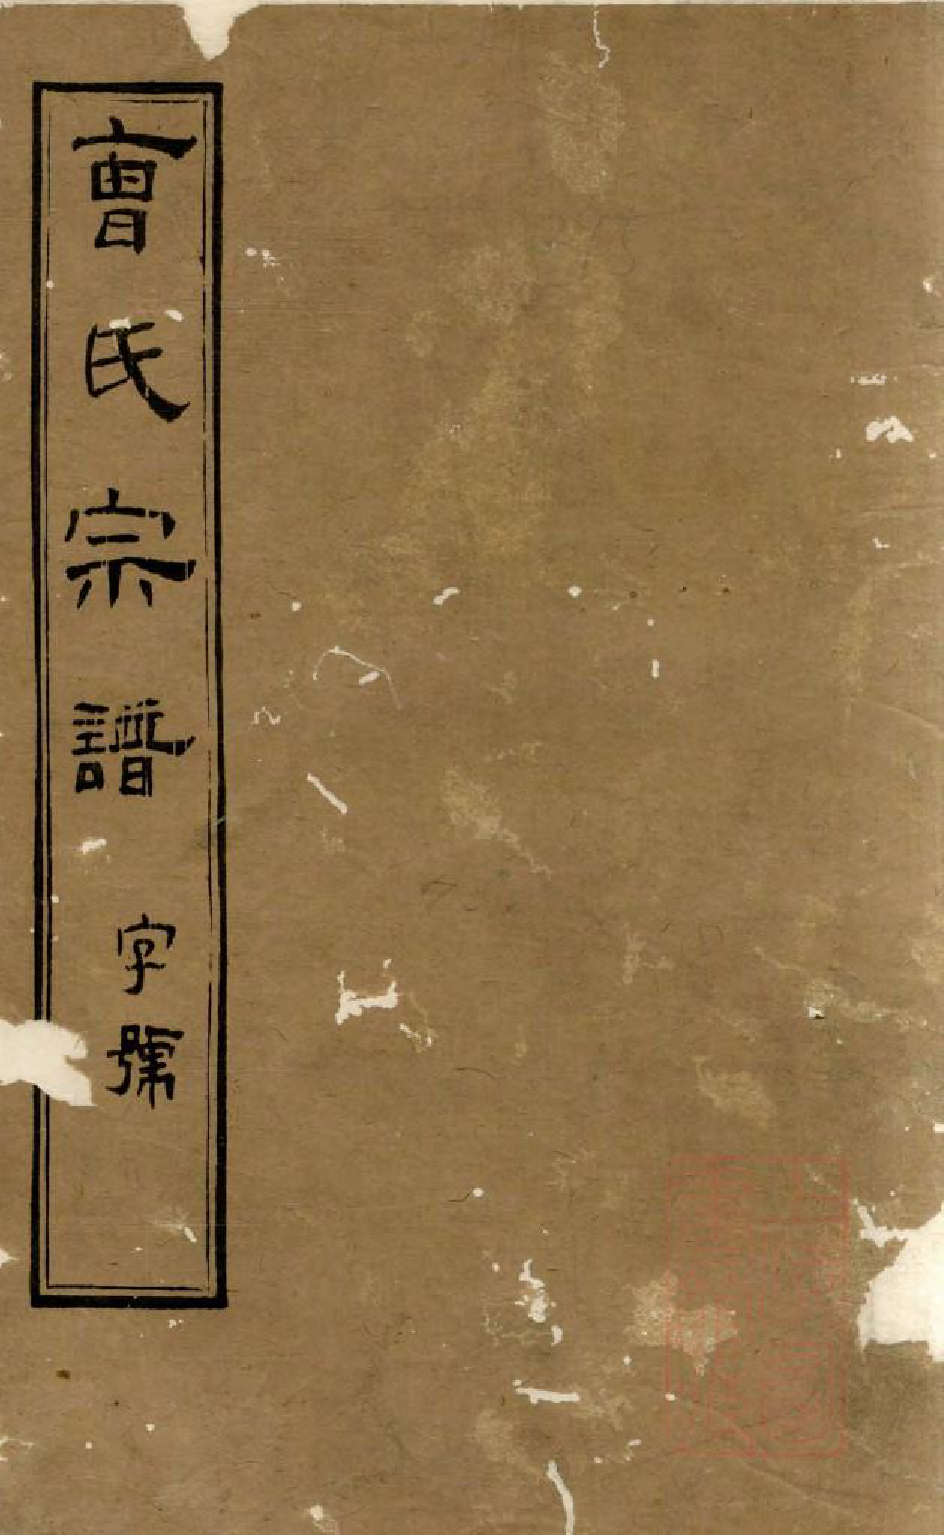 曹氏宗譜
字號